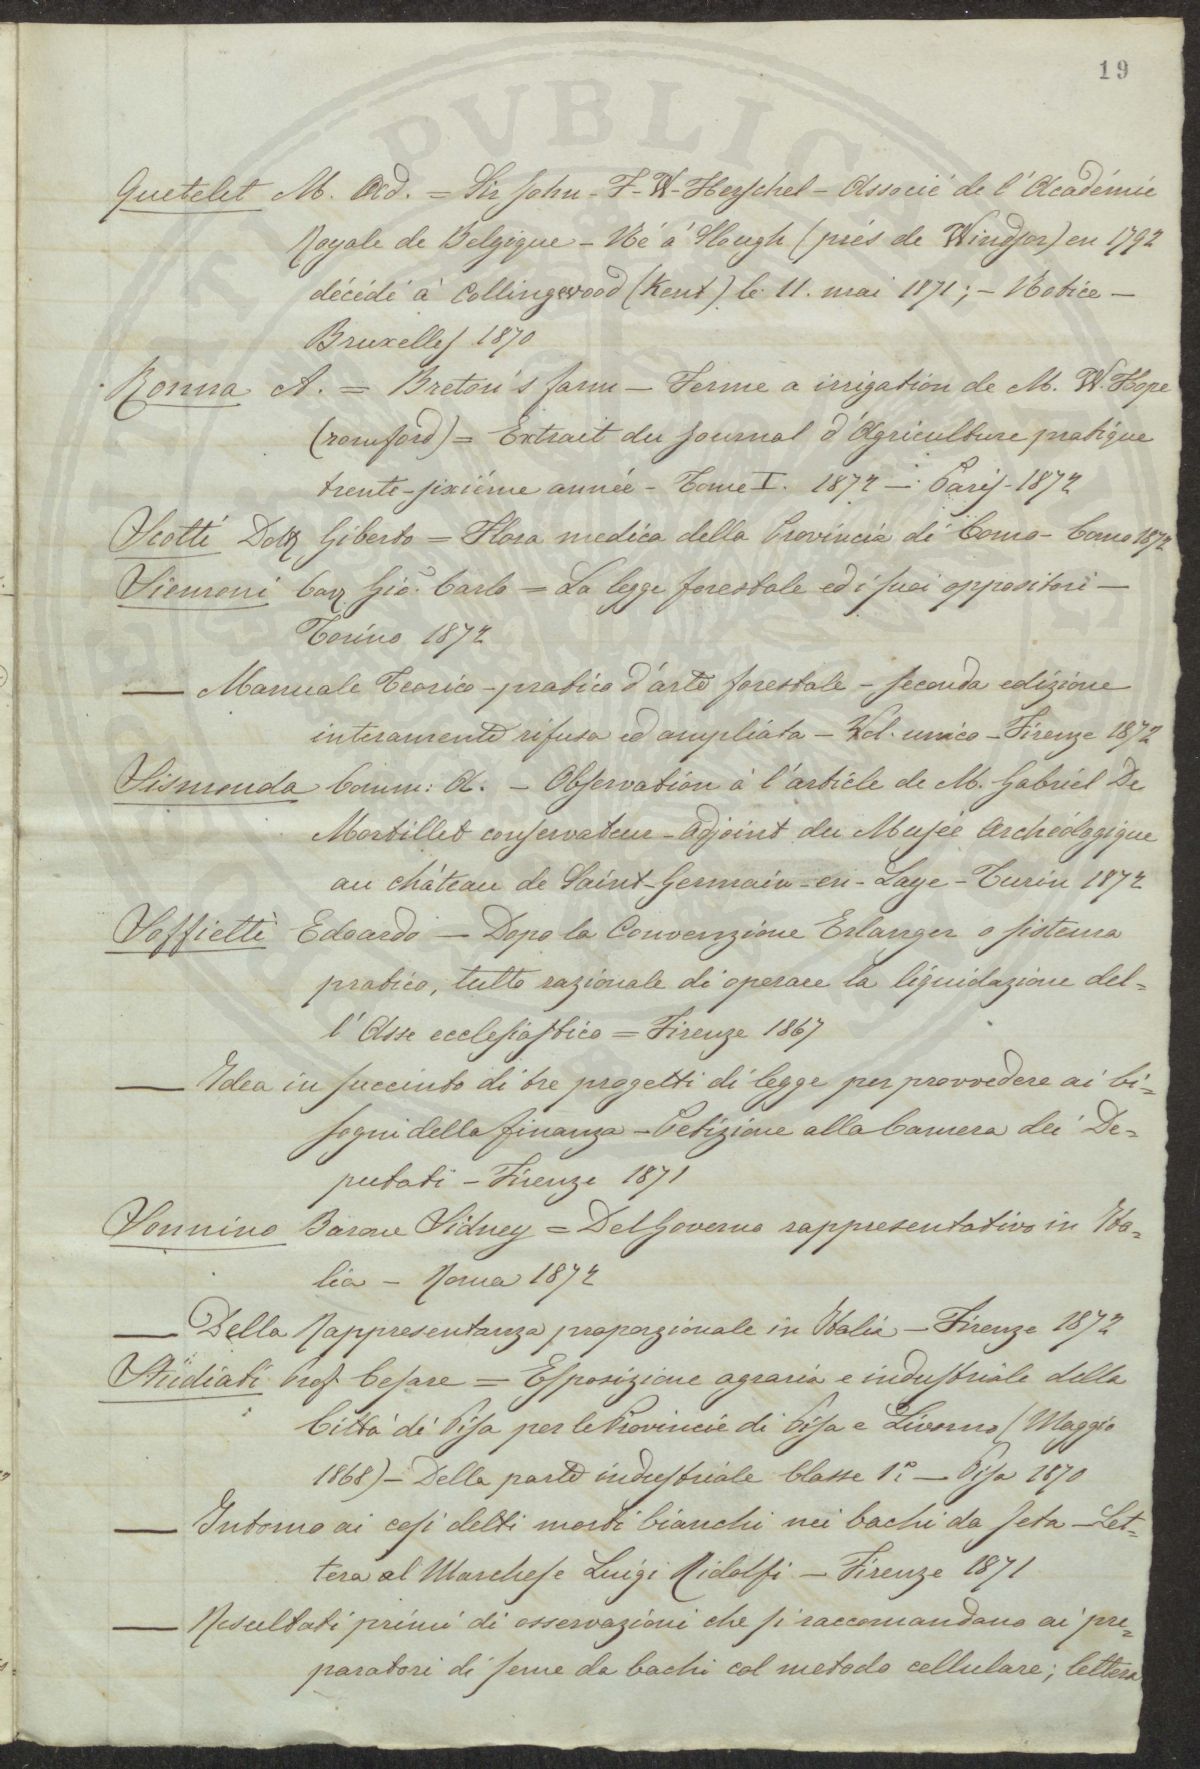 19
Quetelet M. Ad. = Sir John - F- W- Herschel - Associé de l'Académie
Royale de Belgique - Né à Slough (prés de Windsor) en 1792
décédé à Collingwood (Kent) le 11. mai 1871; - Notice -
Bruxelles 1870
Ronna A. = Breton's farm - Ferme a irrigation de M. W. Hope
(romford) = Extrait du journal d'Agriculture pratique
trente-sixiéme année - Tome I. 1872 - Paris - 1872
Scotti Dott Giberto = Flora medica della Provincia di Como - Como 1872
Siemoni Cav. Gio. Carlo = La legge forestale ed i suoi oppositori -
Torino 1872
— Manuale Teorico-pratico d'arte forestale - seconda edizione
interamente rifusa ed ampliata - Vol. unico - Firenze 1872
Sismonda Comm: A. - Observation à l'article de M. Gabriel De
Mortillet conservateur - adjoint du Musée Archéologique
au château de Saint-Germain-en-Laye - Turin 1872
Soffietti Edoardo - Dopo la Convenzione Erlanger o sistema
pratico, tutto razionale di operare la liquidazione del=
l'Asse ecclesiastico = Firenze 1867
— Idea in succinto di tre progetti di legge per provvedere ai bi=
sogni della finanza - Petizione alla Camera dei De=
putati - Firenze 1871
Sonnino Barone Sidney = Del Governo rappresentativo in Ita=
lia - Roma 1872
— Della Rappresentanza proporzionale in Italia - Firenze 1872
Studiati Prof. Cesare = Esposizione agraria e industriale della
Città di Pisa per le Provincie di Pisa e Livorno (Maggio
1868) - Della parte industriale Classe 1ª - Pisa 1870
— Intorno ai cosi detti morti bianchi nei bachi da seta - Let=
tera al Marchese Luigi Ridolfi - Firenze 1871
— Resultati primi di osservazioni che si raccomandano ai pre=
paratori di seme da bachi col metodo cellulare; lettera